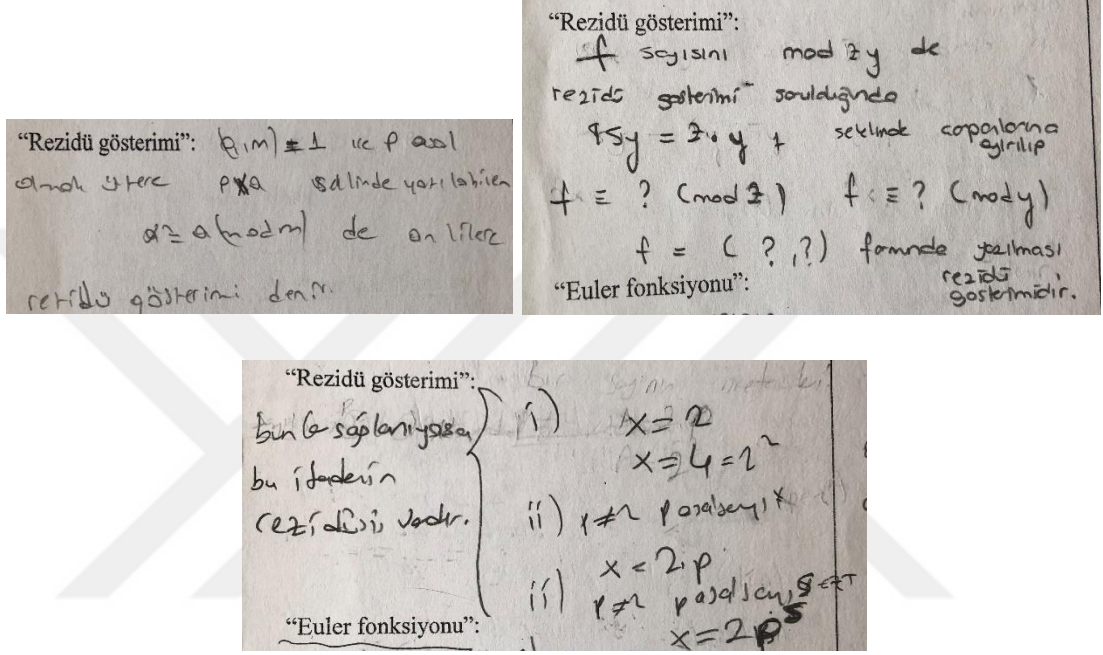 “Rezidü gösterimi”: (a,m)=1 ve p asal
olmak üzere p∤a şeklinde yazılabilen
a≡a(modm) de
rezidü gösterimi denir.
“Rezidü gösterimi”:
f sayısını mod zy de
rezidü gösterimi sorulduğunda
= z.y şeklinde çarpanlarına
ayrılıp
f ≡ ? (mod z) f ≡ ? (mod y)
f = ( ? , ? ) formunda yazılması
rezidü
gösterimidir.
“Euler fonksiyonu”:
“Rezidü gösterimi”:
i) x=2
sağlanıyorsa
x=4=2²
bu ifadenin
rezidüsü vardır.
ii) p≠2 p asal sayı
x=2.p
ii) p≠2 p asal sayı,
“Euler fonksiyonu”: